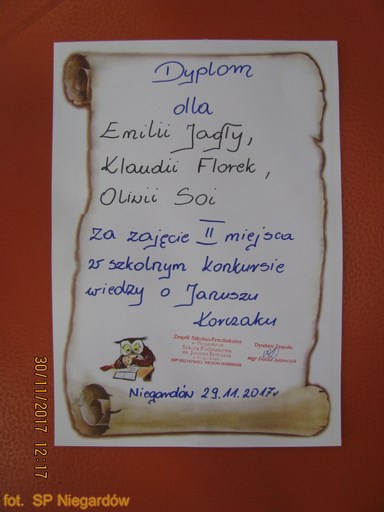 Dyplom
dla
Emilii Jagły,
Klaudii Florek,
Oliwii Soi
za zajęcie II miejsca
w szkolnym konkursie
wiedzy o Januszu
Korczaku
Zespół Szkolno-Przedszkolny
w Niegardowie
Szkoła Podstawowa
im. Janusza Korczaka
w Niegardowie
Dyrektor Zespołu
mgr
Niegardów 29.11.2017r
30/11/2017 12:17
fot. SP Niegardów